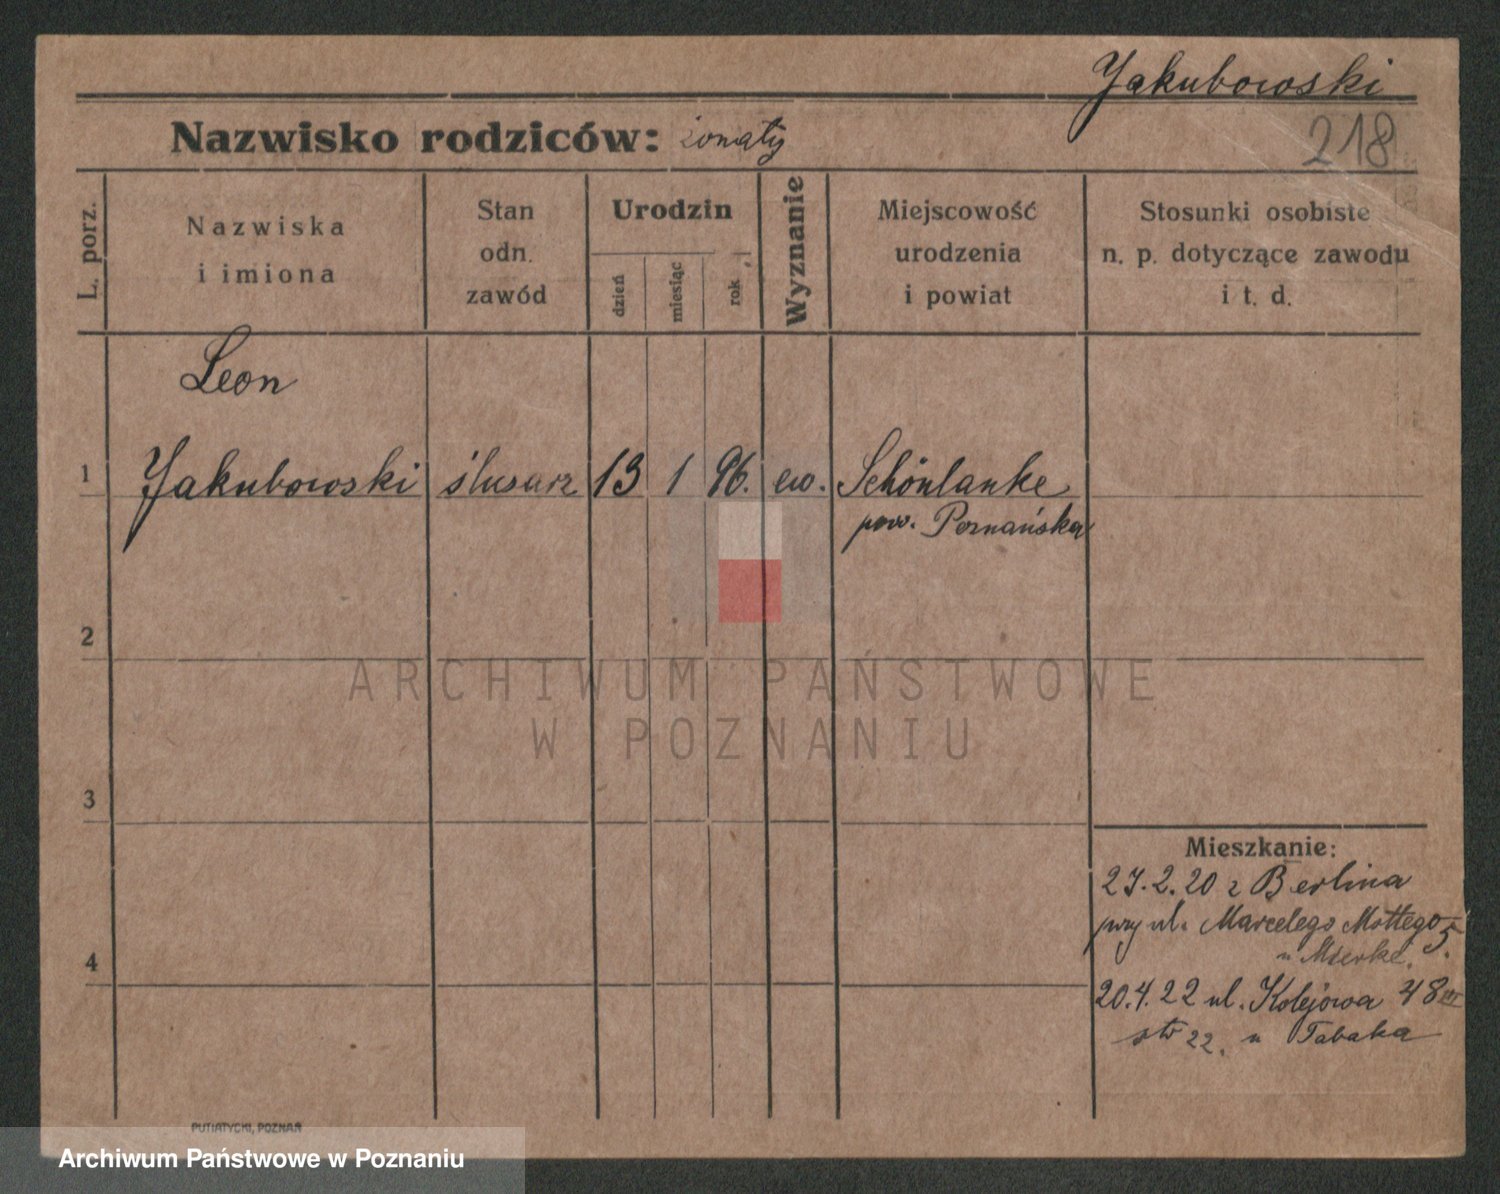 Jakubowski
Nazwisko rodziców: żonaty
218
L. porz.
Nazwiska
i imiona
Stan
odn.
zawód
Urodzin
dzień
miesiąc
rok
Wyznanie
Miejscowość
urodzenia
i powiat
Stosunki osobiste
n. p. dotyczące zawodu
i t. d.
Leon
1 Jakubowski ślusarz 13 1 96. ew. Schönlanke
pow. Poznańska
2
ARCHIWUM PAŃSTWOWE
W POZNANIU
3
Mieszkanie:
27.2.20 z Berlina
przy ul. Marcelego Mottego 5.
u
4
20.4.22 ul. Kolejowa 48 III
22. u Tabaka
PUTIATYCKI, POZNAŃ
Archiwum Państwowe w Poznaniu